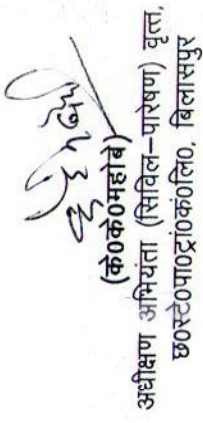 (के०के०महोबे)
अधीक्षण अभियंता (सिविल–पारेषण) वृत्त,
छ०स्टे०पा०ट्रां०कं०लि०, बिलासपुर